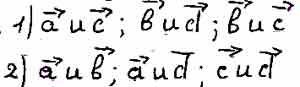 1) a⃗ и c⃗; b⃗ и d⃗; b⃗ и c⃗
2) a⃗ и b⃗; a⃗ и d⃗; c⃗ и d⃗